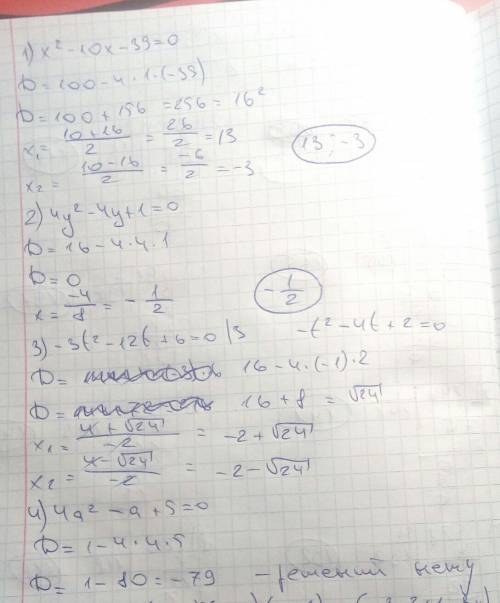 1) x² - 10x - 39 = 0
D = 100 - 4 · 1 · (-39)
D = 100 + 156 = 256 = 16²
x₁ = (10+16)/2 = 26/2 = 13
13 ; -3
x₂ = (10-16)/2 = -6/2 = -3
2) 4y² - 4y + 1 = 0
D = 16 - 4 · 4 · 1
D = 0
x = -4/8 = - 1/2
- 1/2
3) -3t² - 12t + 6 = 0 |3 -t² - 4t + 2 = 0
D = 16 - 4 · (-1) · 2
D = 16 + 8 = √24
x₁ = (4 + √24)/-2 = -2 + √24
x₂ = (4 - √24)/-2 = -2 - √24
4) 4a² - a + 5 = 0
D = 1 - 4 · 4 · 5
D = 1 - 80 = -79 - решений нету